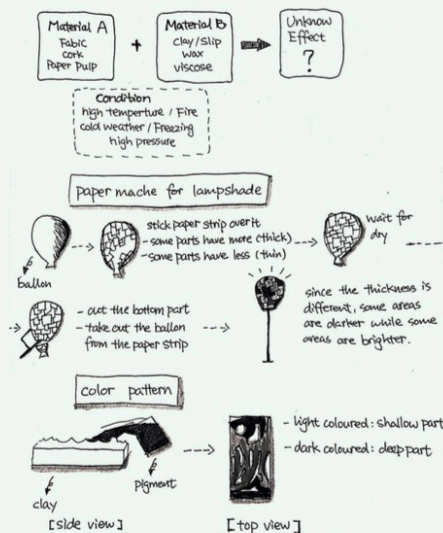 Material A
Fabic
cork
Paper Pulp
+
Material B
Clay/Slip
wax
viscose
Unknow
Effect
?
Condition
high temperture / Fire
cold weather / Freezing
high pressure
paper mache for lampshade
ballon
stick paper strip over it
- some parts have more (thick)
- some parts have less (thin)
wait for
dry
- cut the bottom part
- take out the ballon
from the paper strip
since the thickness is
different, some areas
are darker while some
areas are brighter.
color pattern
clay
pigment
[side view]
- light coloured: shallow part
- dark coloured: deep part
[top view]